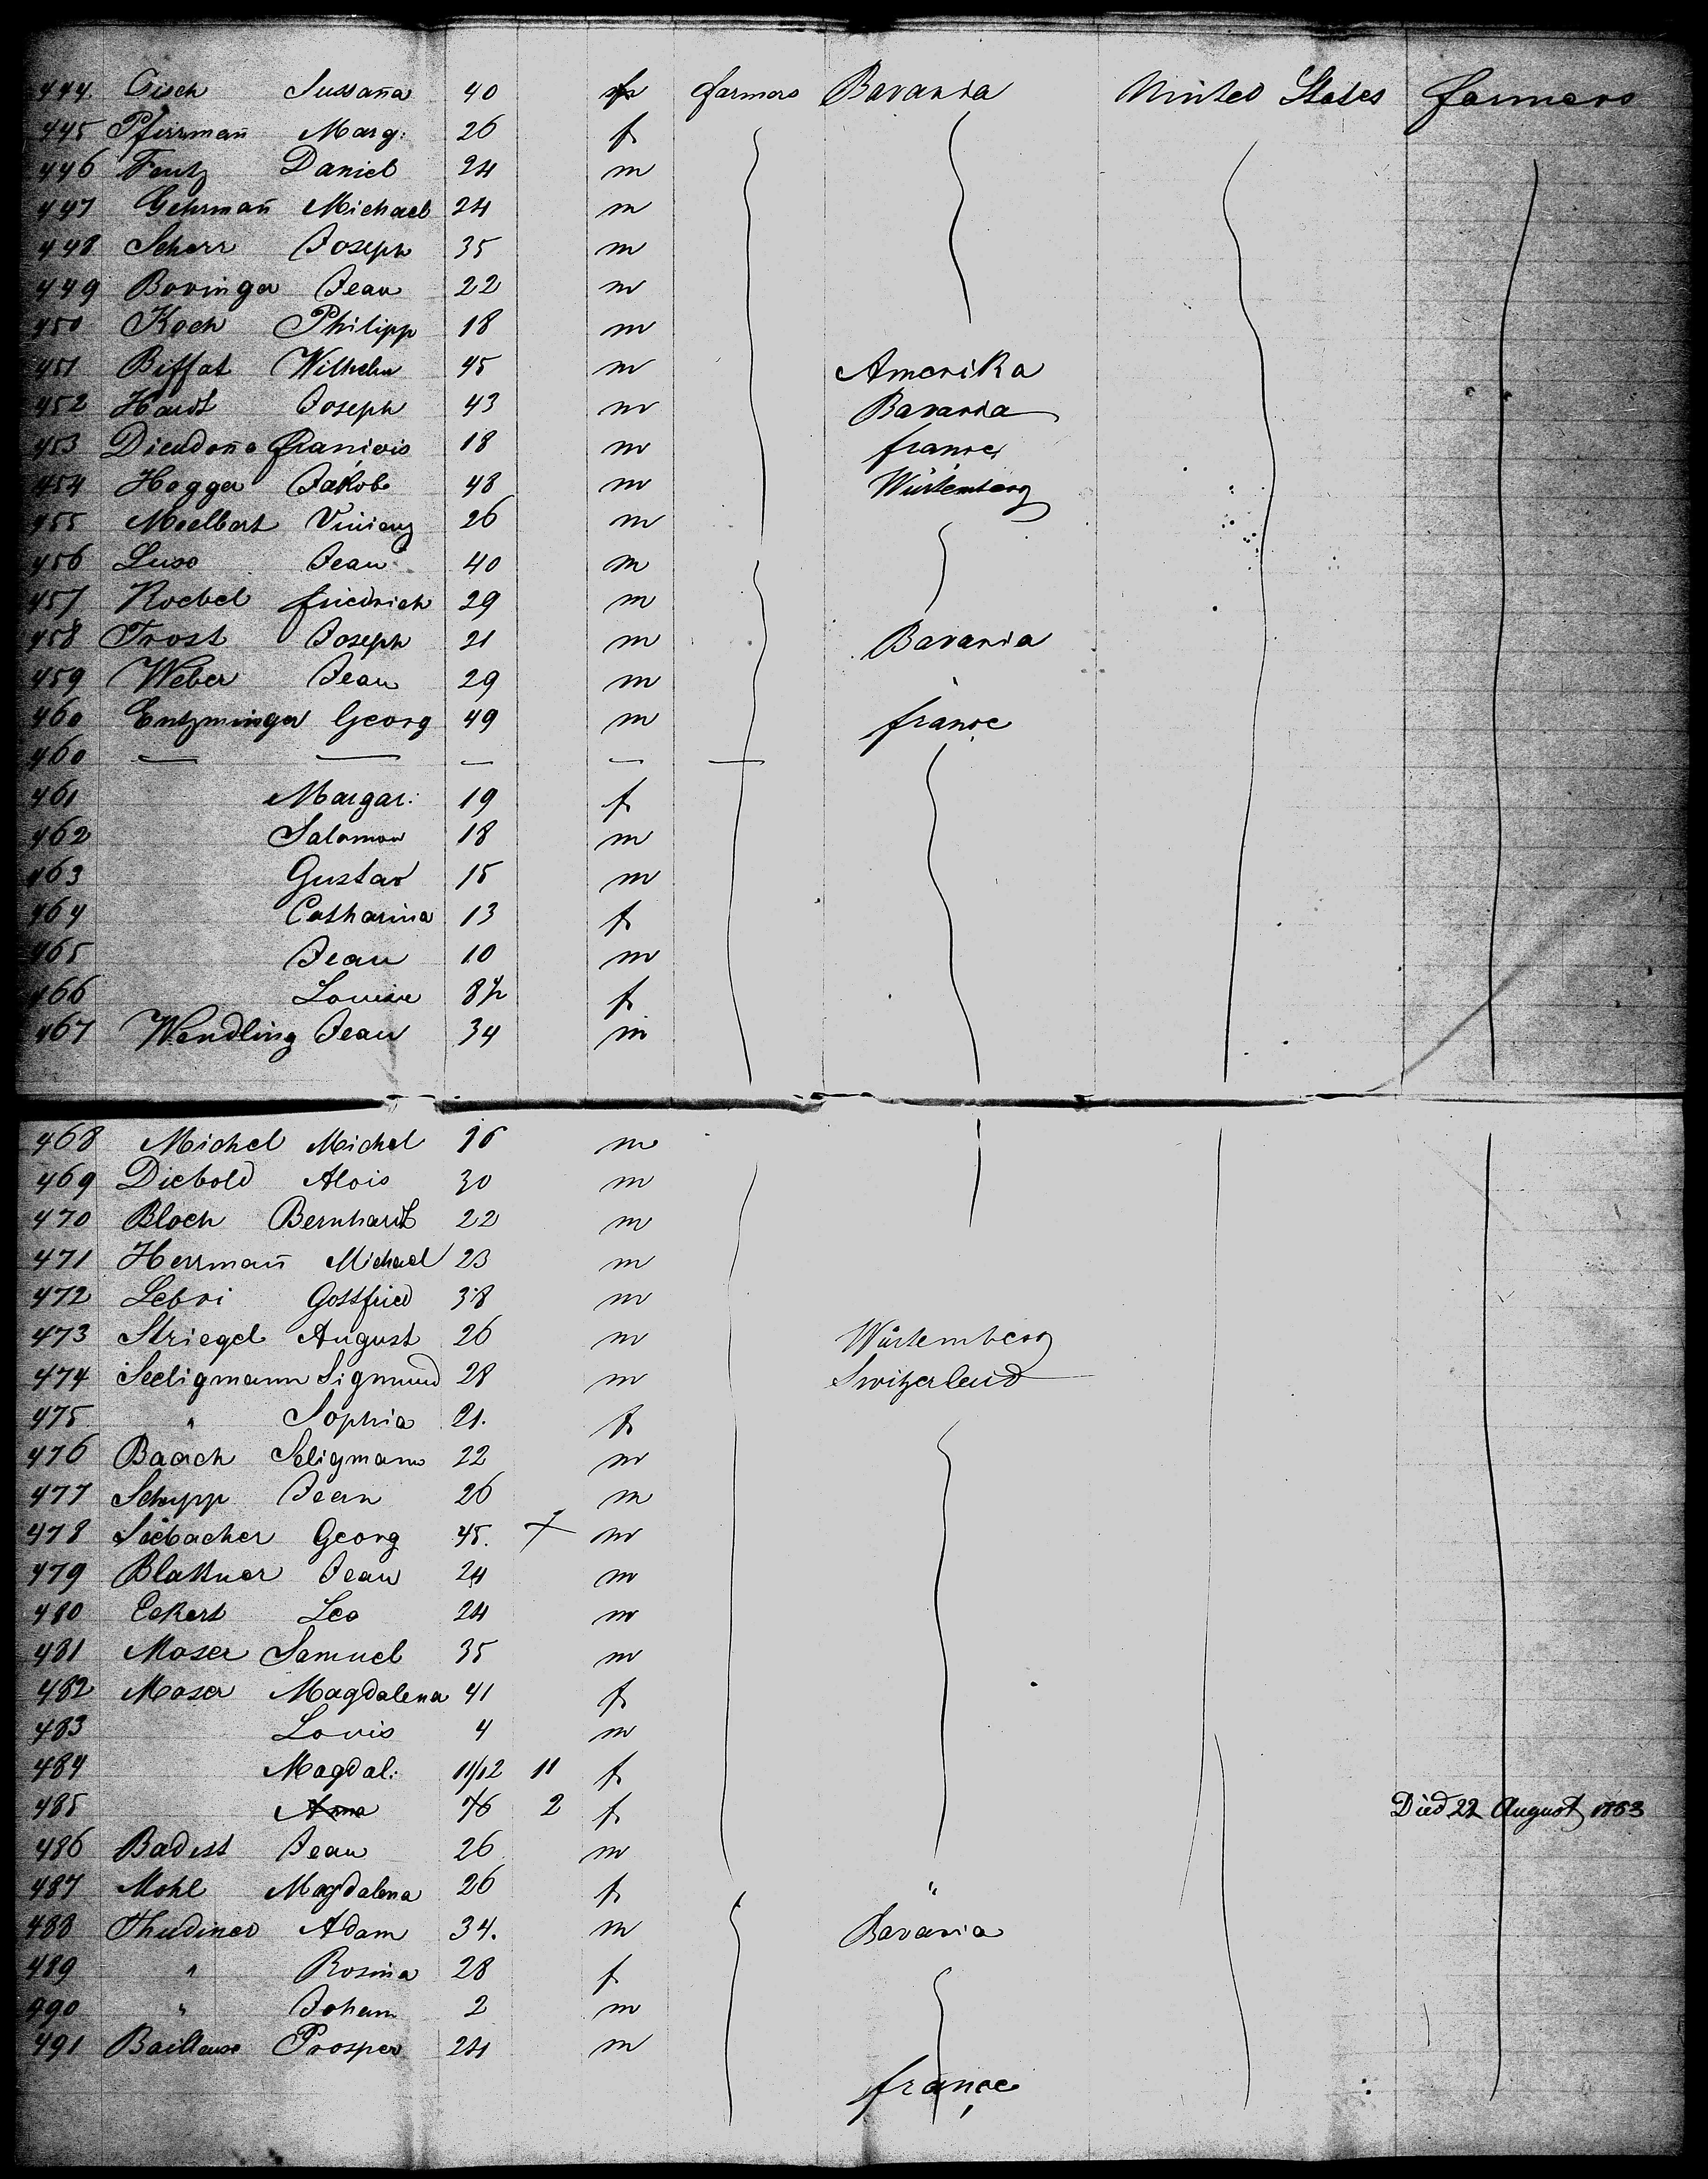 444 Cisch Sussaña 40 f farmers Bavaria United States farmers
445 Pfirrmañ Marg: 26 f
446 Fentz Daniel 24 m
447 Gehrmañ Michael 24 m
448 Scherr Joseph 35 m
449 Bovinger Jean 22 m
450 Koch Philipp 18 m
451 Biffat Wilhelm 45 m Amerika
452 Hardt Joseph 43 m Bavaria
453 Dieudoñe francois 18 m france
454 Hogger Jakob 48 m Würtemberg
455 Moelbert 26 m
456 Jean 40 m
457 Roebel friedrich 29 m
458 Trost Joseph 21 m Bavaria
459 Weber Jean 29 m
460 Entzminger Georg 49 m france
460 — — — — —
461 Margar: 19 f
462 Salomon 18 m
463 Gustav 15 m
464 Catharina 13 f
465 Jean 10 m
466 Louise 8½ f
467 Wendling Jean 34 m
468 Michel Michel 26 m
469 Diebold Alois 30 m
470 Bloch Bernhardt 22 m
471 Herrmañ Michael 23 m
472 Lebri Gottfried 38 m
473 Striegel August 26 m Würtemberg
474 Seeligmann Sigmund 28 m Switzerland
475 " Sophia 21. f
476 Baach Seligmann 22 m
477 Schupp Jean 26 m
478 Siebacher Georg 45. + m
479 Blattner Jean 24 m
480 Eckert Leo 24 m
481 Moser Samuel 35 m
482 Moser Magdalena 41 f
483 Louis 4 m
484 Magdal: 11/12 11 f
485 Anna 2 f Died 22 August 1853
486 Badest Jean 26 m
487 Mohl Magdalena 26 f "
488 Adam 34. m Bavaria
489 " Rosina 28 f
490 " Johann 2 m
491 Prosper 24 m
france